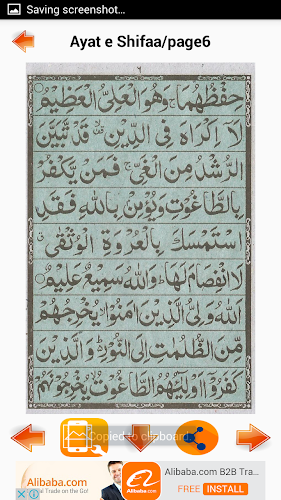 Saving screenshot...
Ayat e Shifaa/page6
حِفْظُهُمَا وَهُوَ الْعَلِيُّ الْعَظِيْمُ
لَآ اِكْرَاهَ فِي الدِّيْنِ قَدْ تَّبَيَّنَ
الرُّشْدُ مِنَ الْغَيِّ فَمَنْ يَّكْفُرْ
بِالطَّاغُوْتِ وَيُؤْمِنْ بِاللهِ فَقَدِ
اسْتَمْسَكَ بِالْعُرْوَةِ الْوُثْقٰى
لَا انْفِصَامَ لَهَا وَاللهُ سَمِيْعٌ عَلِيْمٌ
اَللهُ وَلِيُّ الَّذِيْنَ اٰمَنُوْا يُخْرِجُهُمْ
مِّنَ الظُّلُمٰتِ اِلَى النُّوْرِ وَالَّذِيْنَ
كَفَرُوْٓا اَوْلِيٰٓئُهُمُ الطَّاغُوْتُ يُخْرِجُوْنَهُمْ
Copied to clipboard.
Alibaba.com
Global Trade on the Go!
Alibaba.com
Alibaba.com B2B Tra...
FREE INSTALL